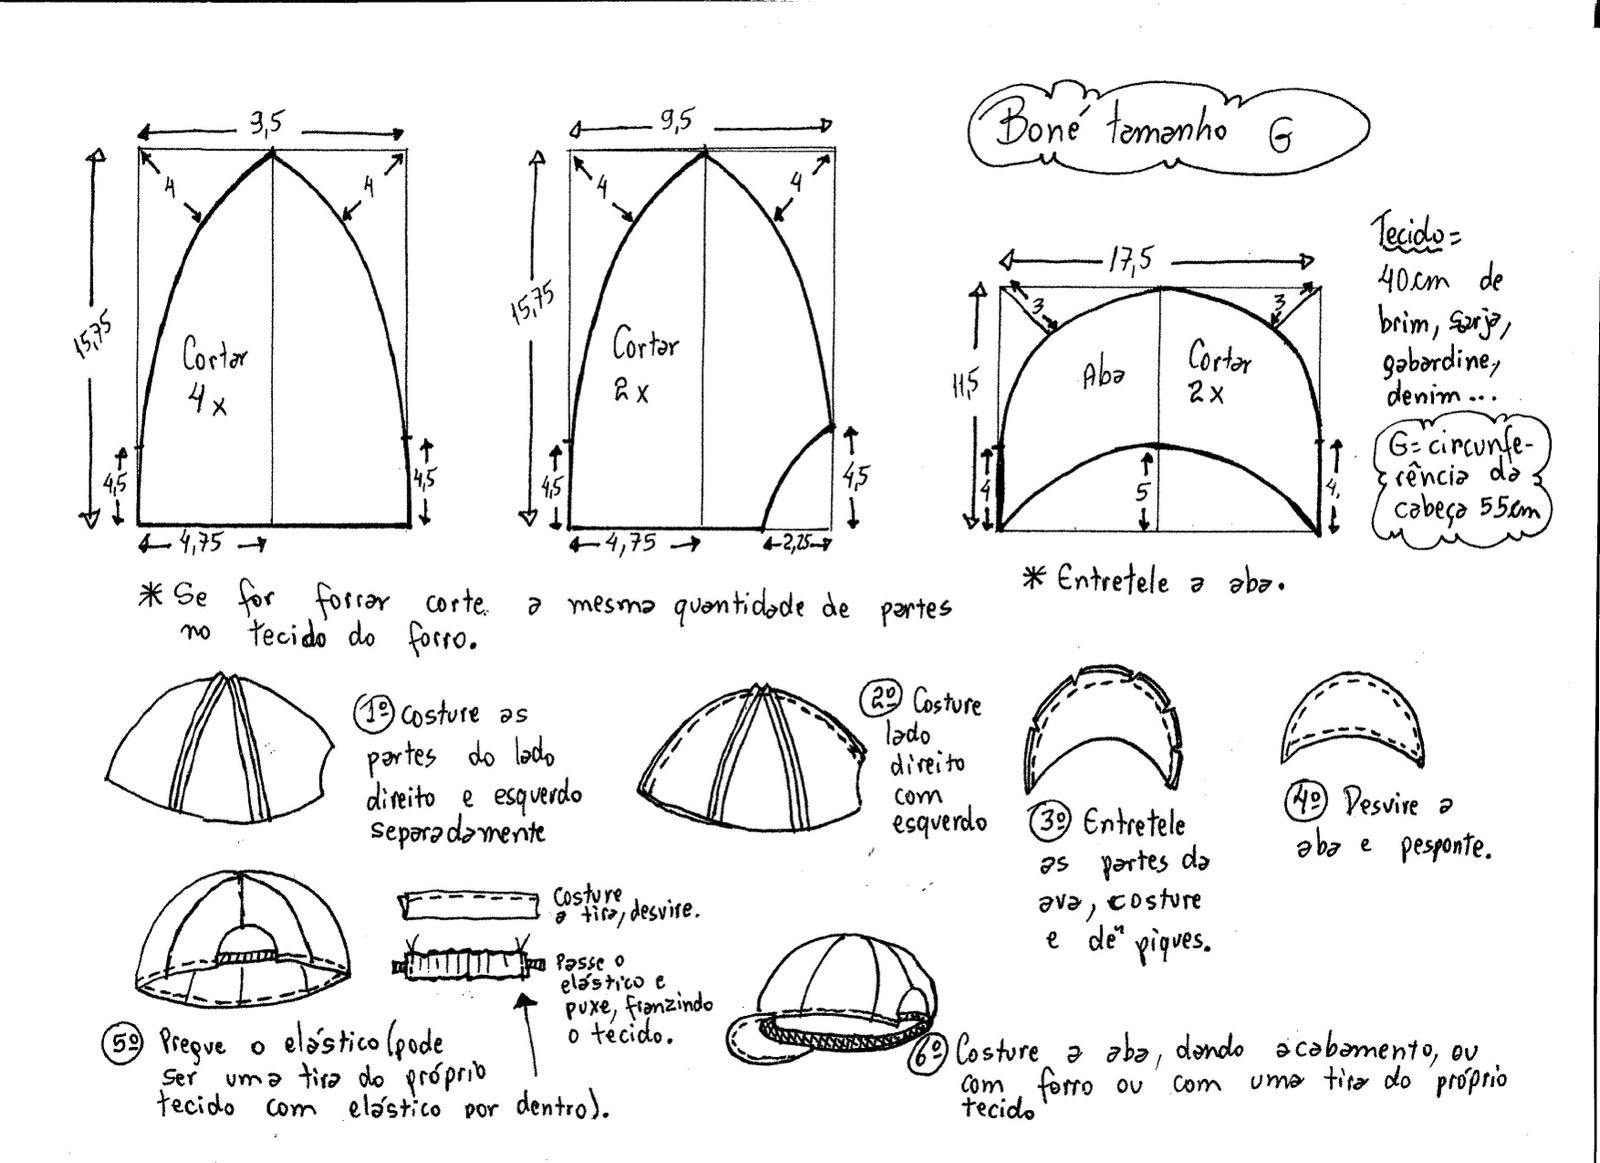 Boné tamanho G
9,5
4
4
15,75
Cortar
4x
4,5
4,5
4,75
9,5
4
4
15,75
Cortar
2x
4,5
4,5
4,75
2,25
17,5
3
3
11,5
Aba
Cortar
2x
4
5
4,
Tecido =
40cm de
brim, sarja,
gabardine,
denim...
G=circunfe-
rência da
cabeça 55cm
* Entretele a aba.
* Se for forrar corte a mesma quantidade de partes
no tecido do forro.
1º Costure as
partes do lado
direito e esquerdo
separadamente
2º Costure
lado
direito
com
esquerdo
3º Entretele
as partes da
ava, costure
e dê" piques.
4º Desvire a
aba e pesponte.
Costure
a tira, desvire.
Passe o
elástico e
puxe, franzindo
o tecido.
5º Pregue o elástico (pode
ser uma tira do próprio
tecido com elástico por dentro).
6º Costure a aba, dando acabamento, ou
com forro ou com uma tira do próprio
tecido